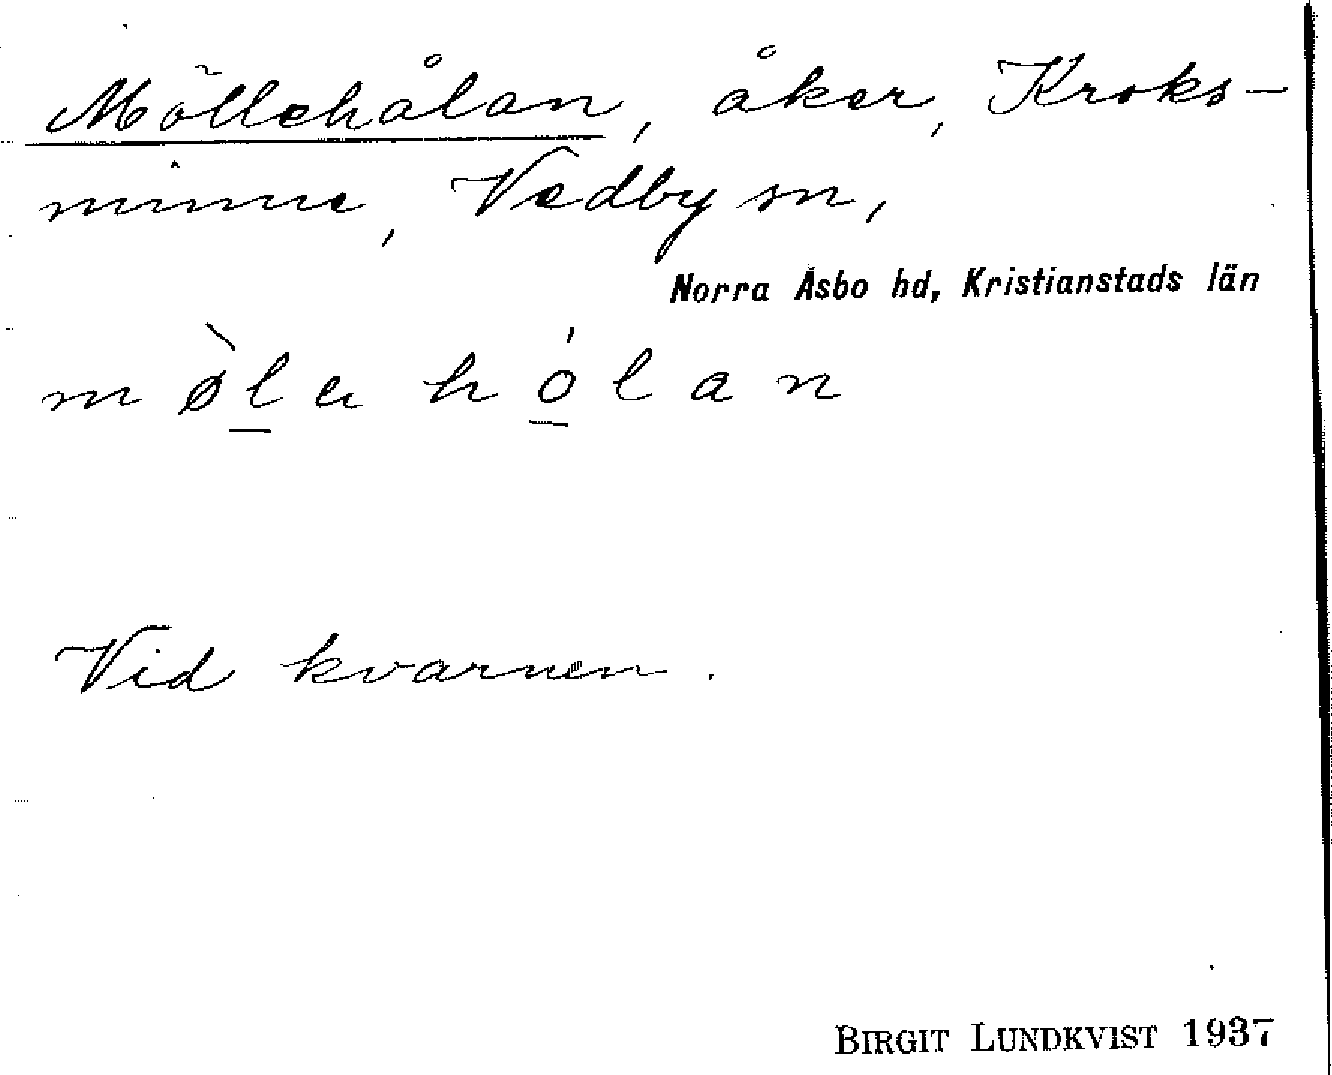 Möllehålan, åker, Kroks-
minne, Vedby sn,
Norra Åsbo hd, Kristianstads län
mø̀l̲a hó̲lan
Vid kvarnen.
BIRGIT LUNDKVIST 1937